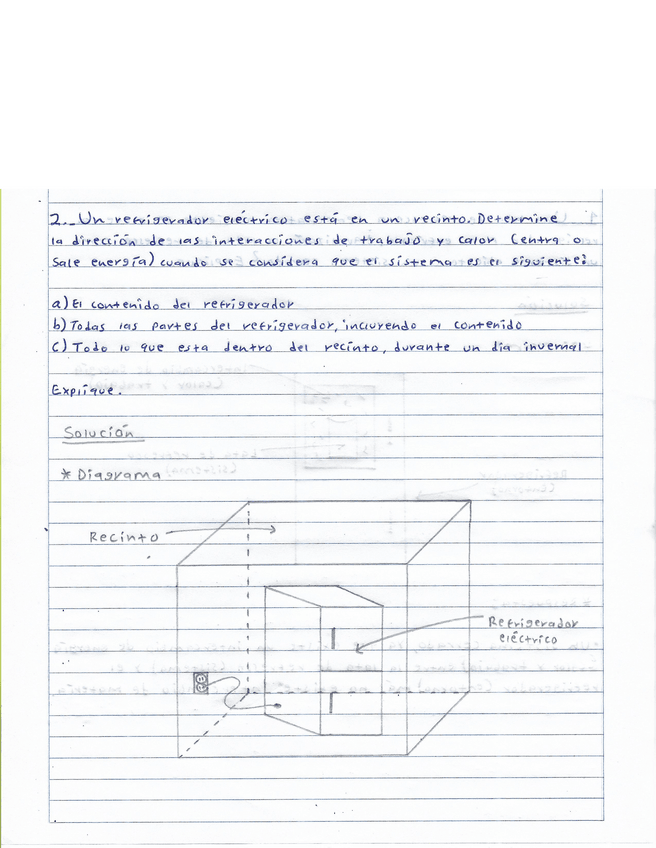 2. Un refrigerador eléctrico está en un recinto. Determine
la dirección de las interacciones de trabajo y calor (entra o
sale energía) cuando se considera que el sistema es el siguiente:
a) El contenido del refrigerador
b) Todas las partes del refrigerador, incluyendo el contenido
c) Todo lo que esta dentro del recinto, durante un dia invernal
Explique.
Solución
* Diagrama
Recinto
Refrigerador
eléctrico